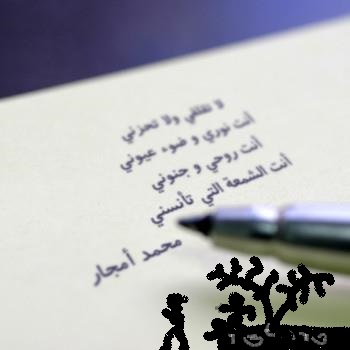 لا تقلقي ولا تحزني
أنت نوري و ضوء عيوني
أنت روحي و جنوني
أنت الشمعة التي تأنسني
محمد أمجار